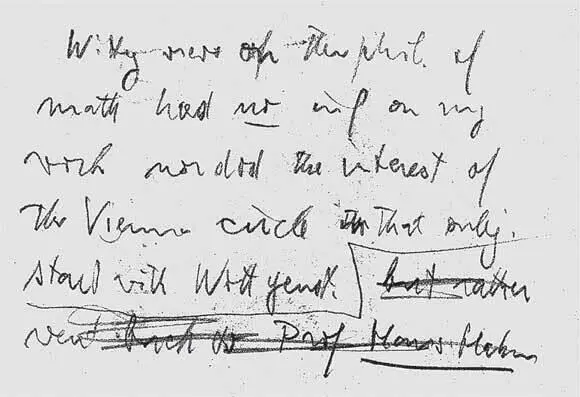 Wittg views on the phil. of
math had no inf on my
work nor did the interest of
the Vienna circle in that subj.
start with Wittgenst. but rather
went back to Prof Hans Hahn